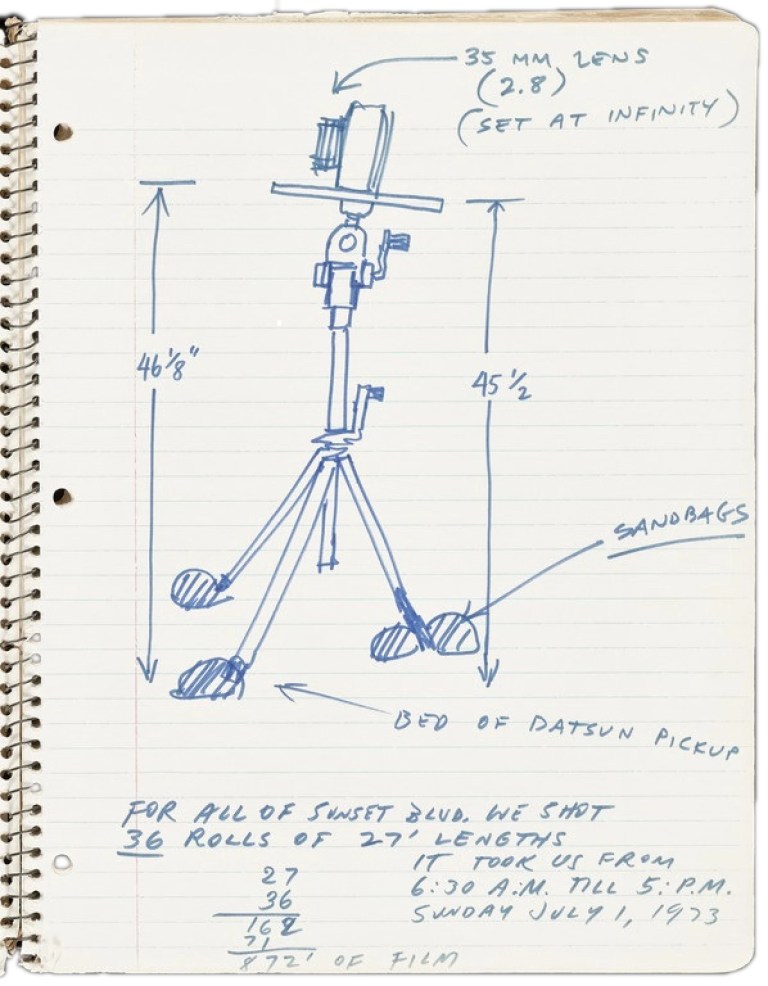 35 MM LENS
(2.8)
(SET AT INFINITY)
46 1/8"
45 1/2
SANDBAGS
BED OF DATSUN PICKUP
FOR ALL OF SUNSET BLVD. WE SHOT
36 ROLLS OF 27' LENGTHS
IT TOOK US FROM
6:30 A.M. TILL 5: P.M.
SUNDAY JULY 1, 1973
27
36
162
71
872' OF FILM